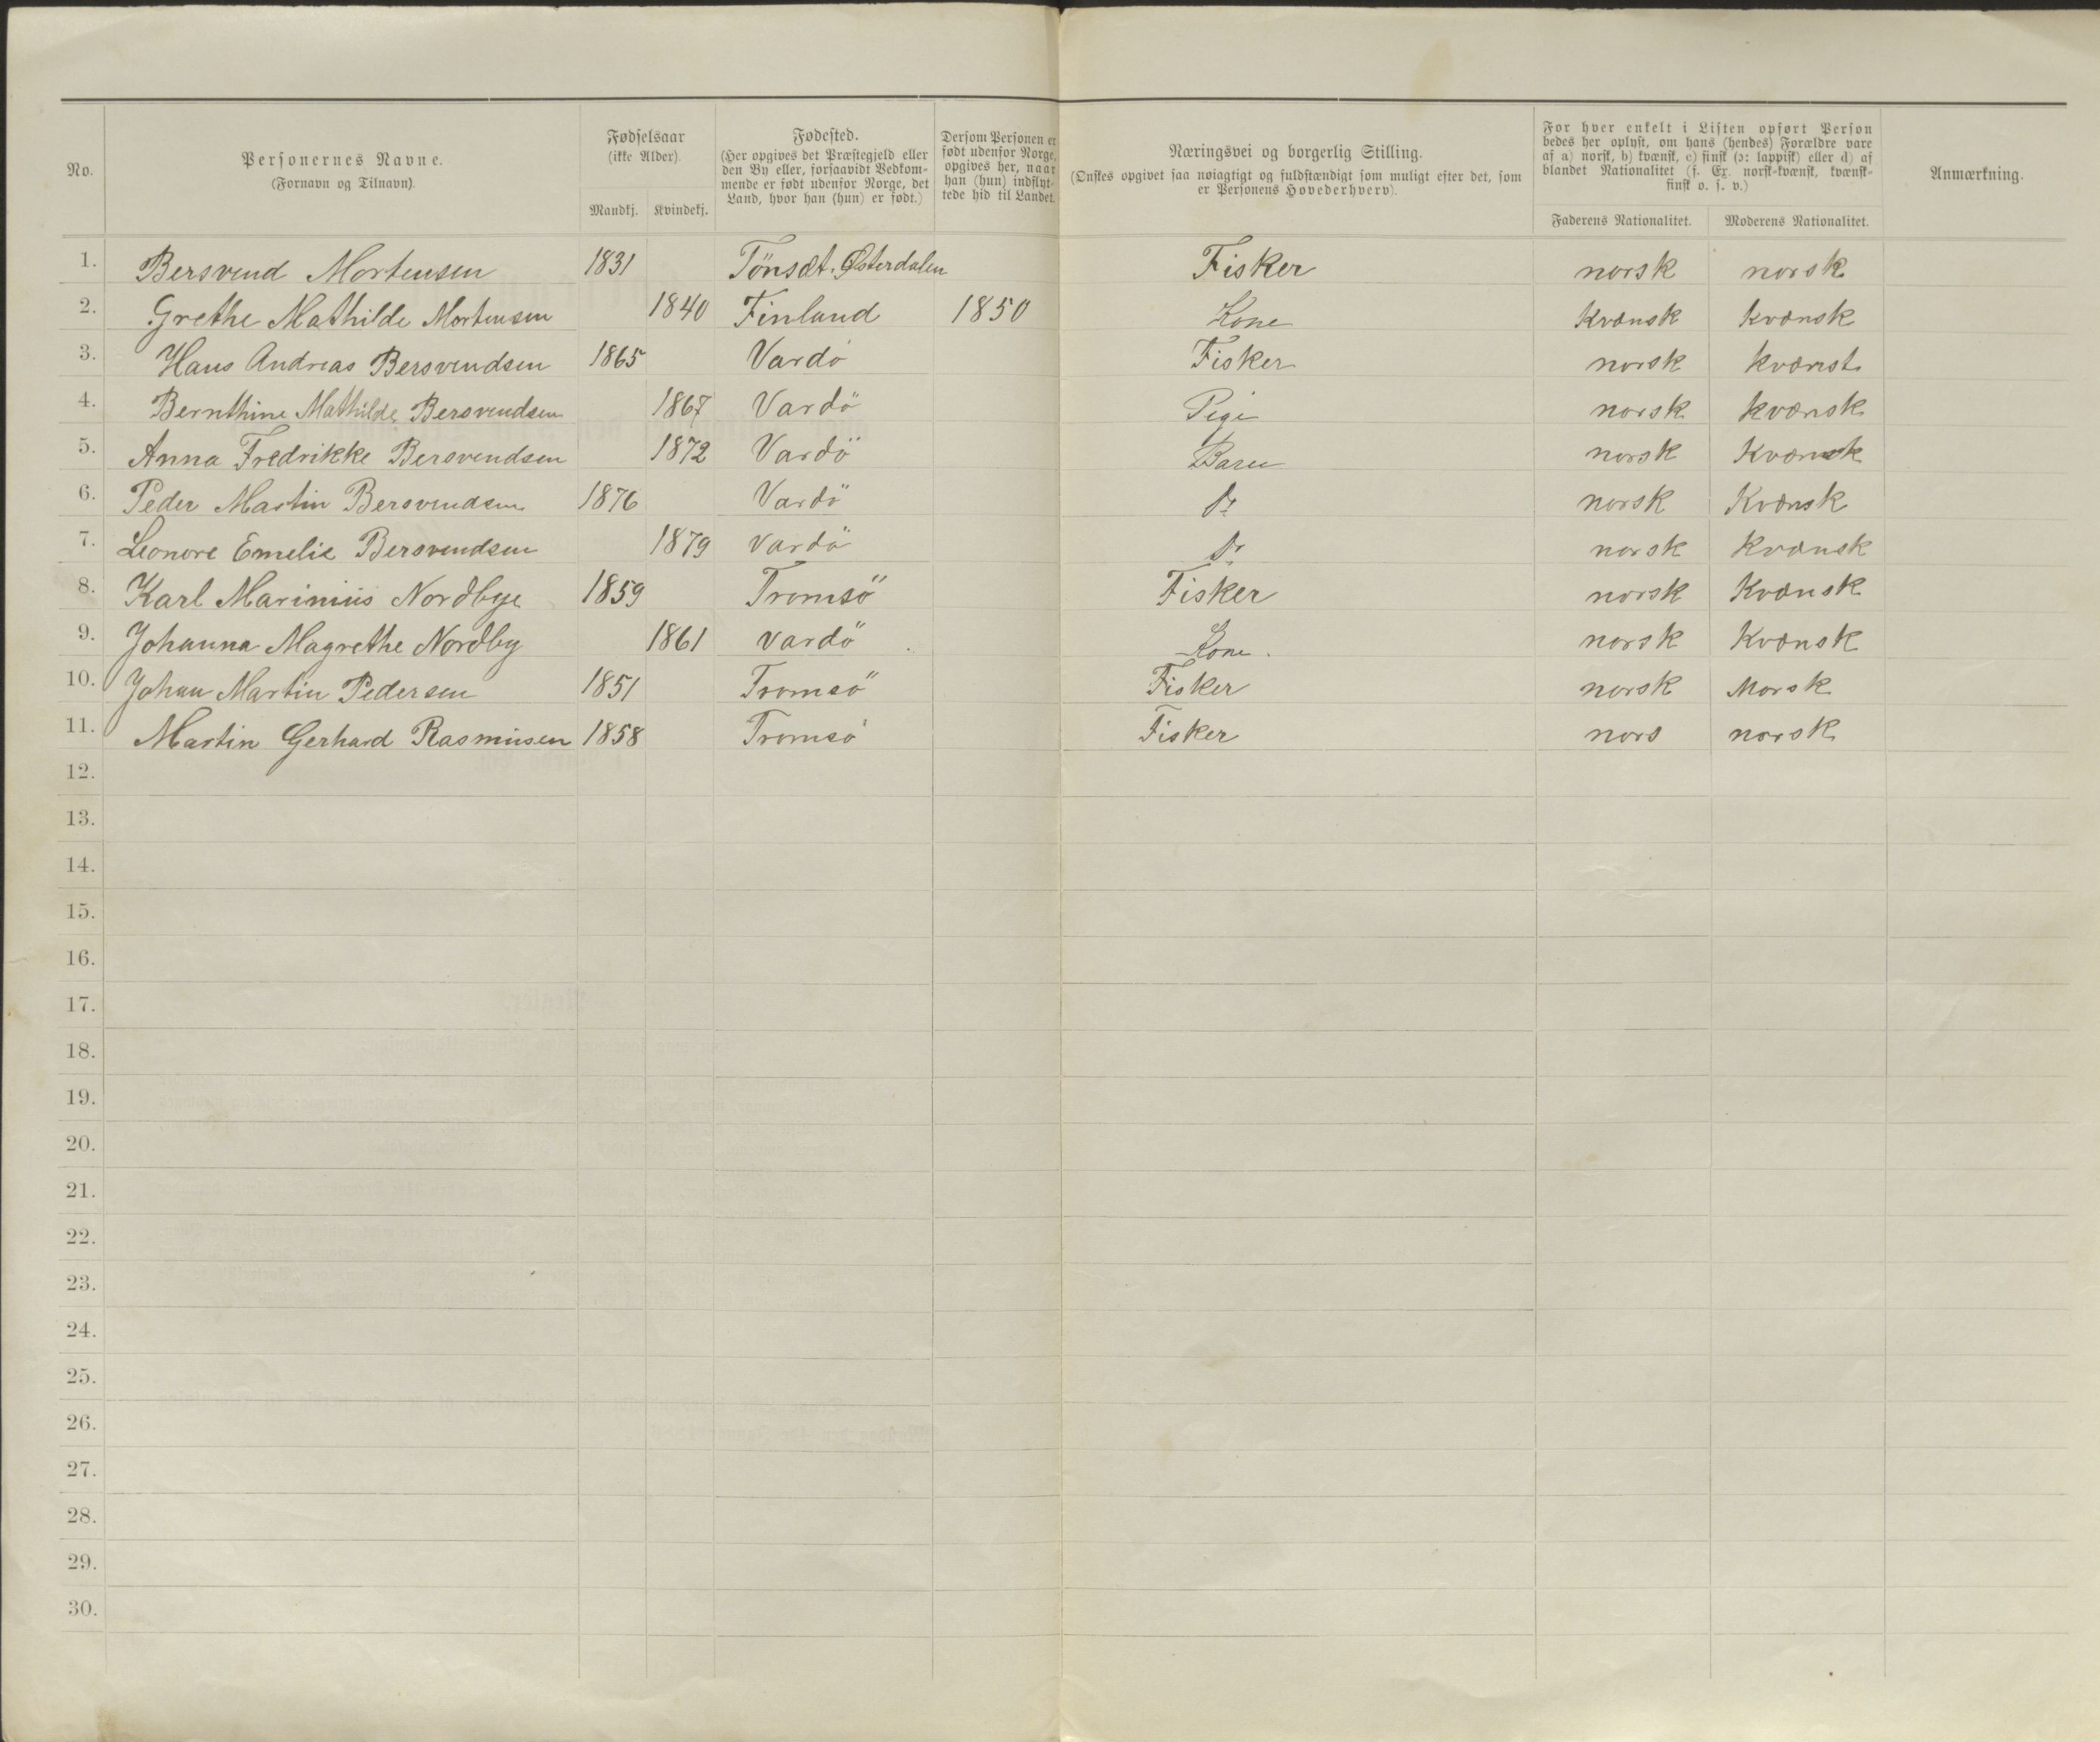 No.
Personernes Navne.
(Fornavn og Tilnavn).
Fødselsaar
(ikke Alder).
Mandkj. Kvindekj.
Fødested.
(Her opgives det Præstegjeld eller
den By eller, forsaavidt Vedkom-
mende er født udenfor Norge, det
Land, hvor han (hun) er født.)
Dersom Personen er
født udenfor Norge,
opgives her, naar
han (hun) indflyt-
tede hid til Landet.
Næringsvei og borgerlig Stilling.
(Ønskes opgivet saa nøiagtigt og fuldstændigt som muligt efter det, som
er Personens Hovederhverv).
For hver enkelt i Listen opført Person
bedes her oplyst, om hans (hendes) Forældre vare
af a) norsk, b) kvænsk, c) finsk (ɔ: lappisk) eller d) af
blandet Nationalitet (f. Ex. norsk-kvænsk, kvænsk-
finsk o. s. v.)
Faderens Nationalitet. Moderens Nationalitet.
Anmærkning.
1. Bersvend Mortensen 1831 Tönsæt. Østerdalen Fisker norsk norsk
2. Grethe Mathilde Mortensen 1840 Finland 1850 Kone Kvænsk kvænsk
3. Hans Andreas Bersvendsen 1865 Vardö Fisker norsk kvænsk
4. Bernthine Mathilde Bersvendsen 1867 Vardö Pige norsk kvænsk
5. Anna Fredrikke Bersvendsen 1872 Vardö Barn norsk Kvænsk
6. Peder Martin Bersvendsen 1876 Vardö Do norsk Kvænsk
7. Leonore Emelie Bersvendsen 1879 Vardö Do norsk Kvænsk
8. Karl Marinius Nordbye 1859 Tromsö Fisker norsk Kvænsk
9. Johanna Magrethe Nordby 1861 Vardö Kone. norsk Kvænsk
10. Johan Martin Pedersen 1851 Tromsö Fisker norsk Norsk
11. Martin Gerhard Rasmusen 1858 Tromsö Fisker nors norsk
12.
13.
14.
15.
16.
17.
18.
19.
20.
21.
22.
23.
24.
25.
26.
27.
28.
29.
30.